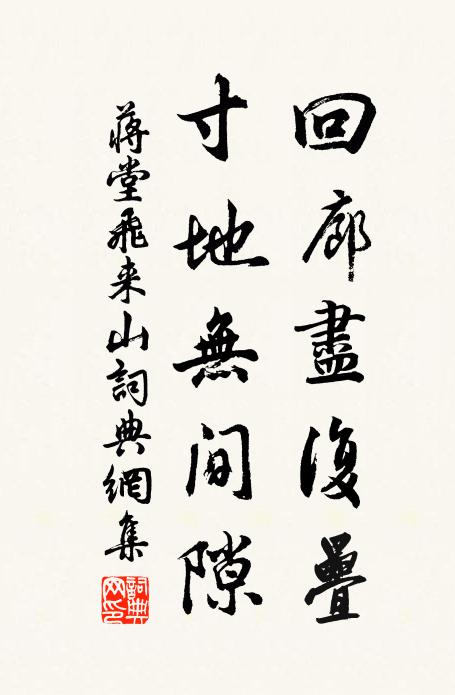 回廊盡復疊
寸地無間隙
蔣堂飛来山詞典網集
詞典网印